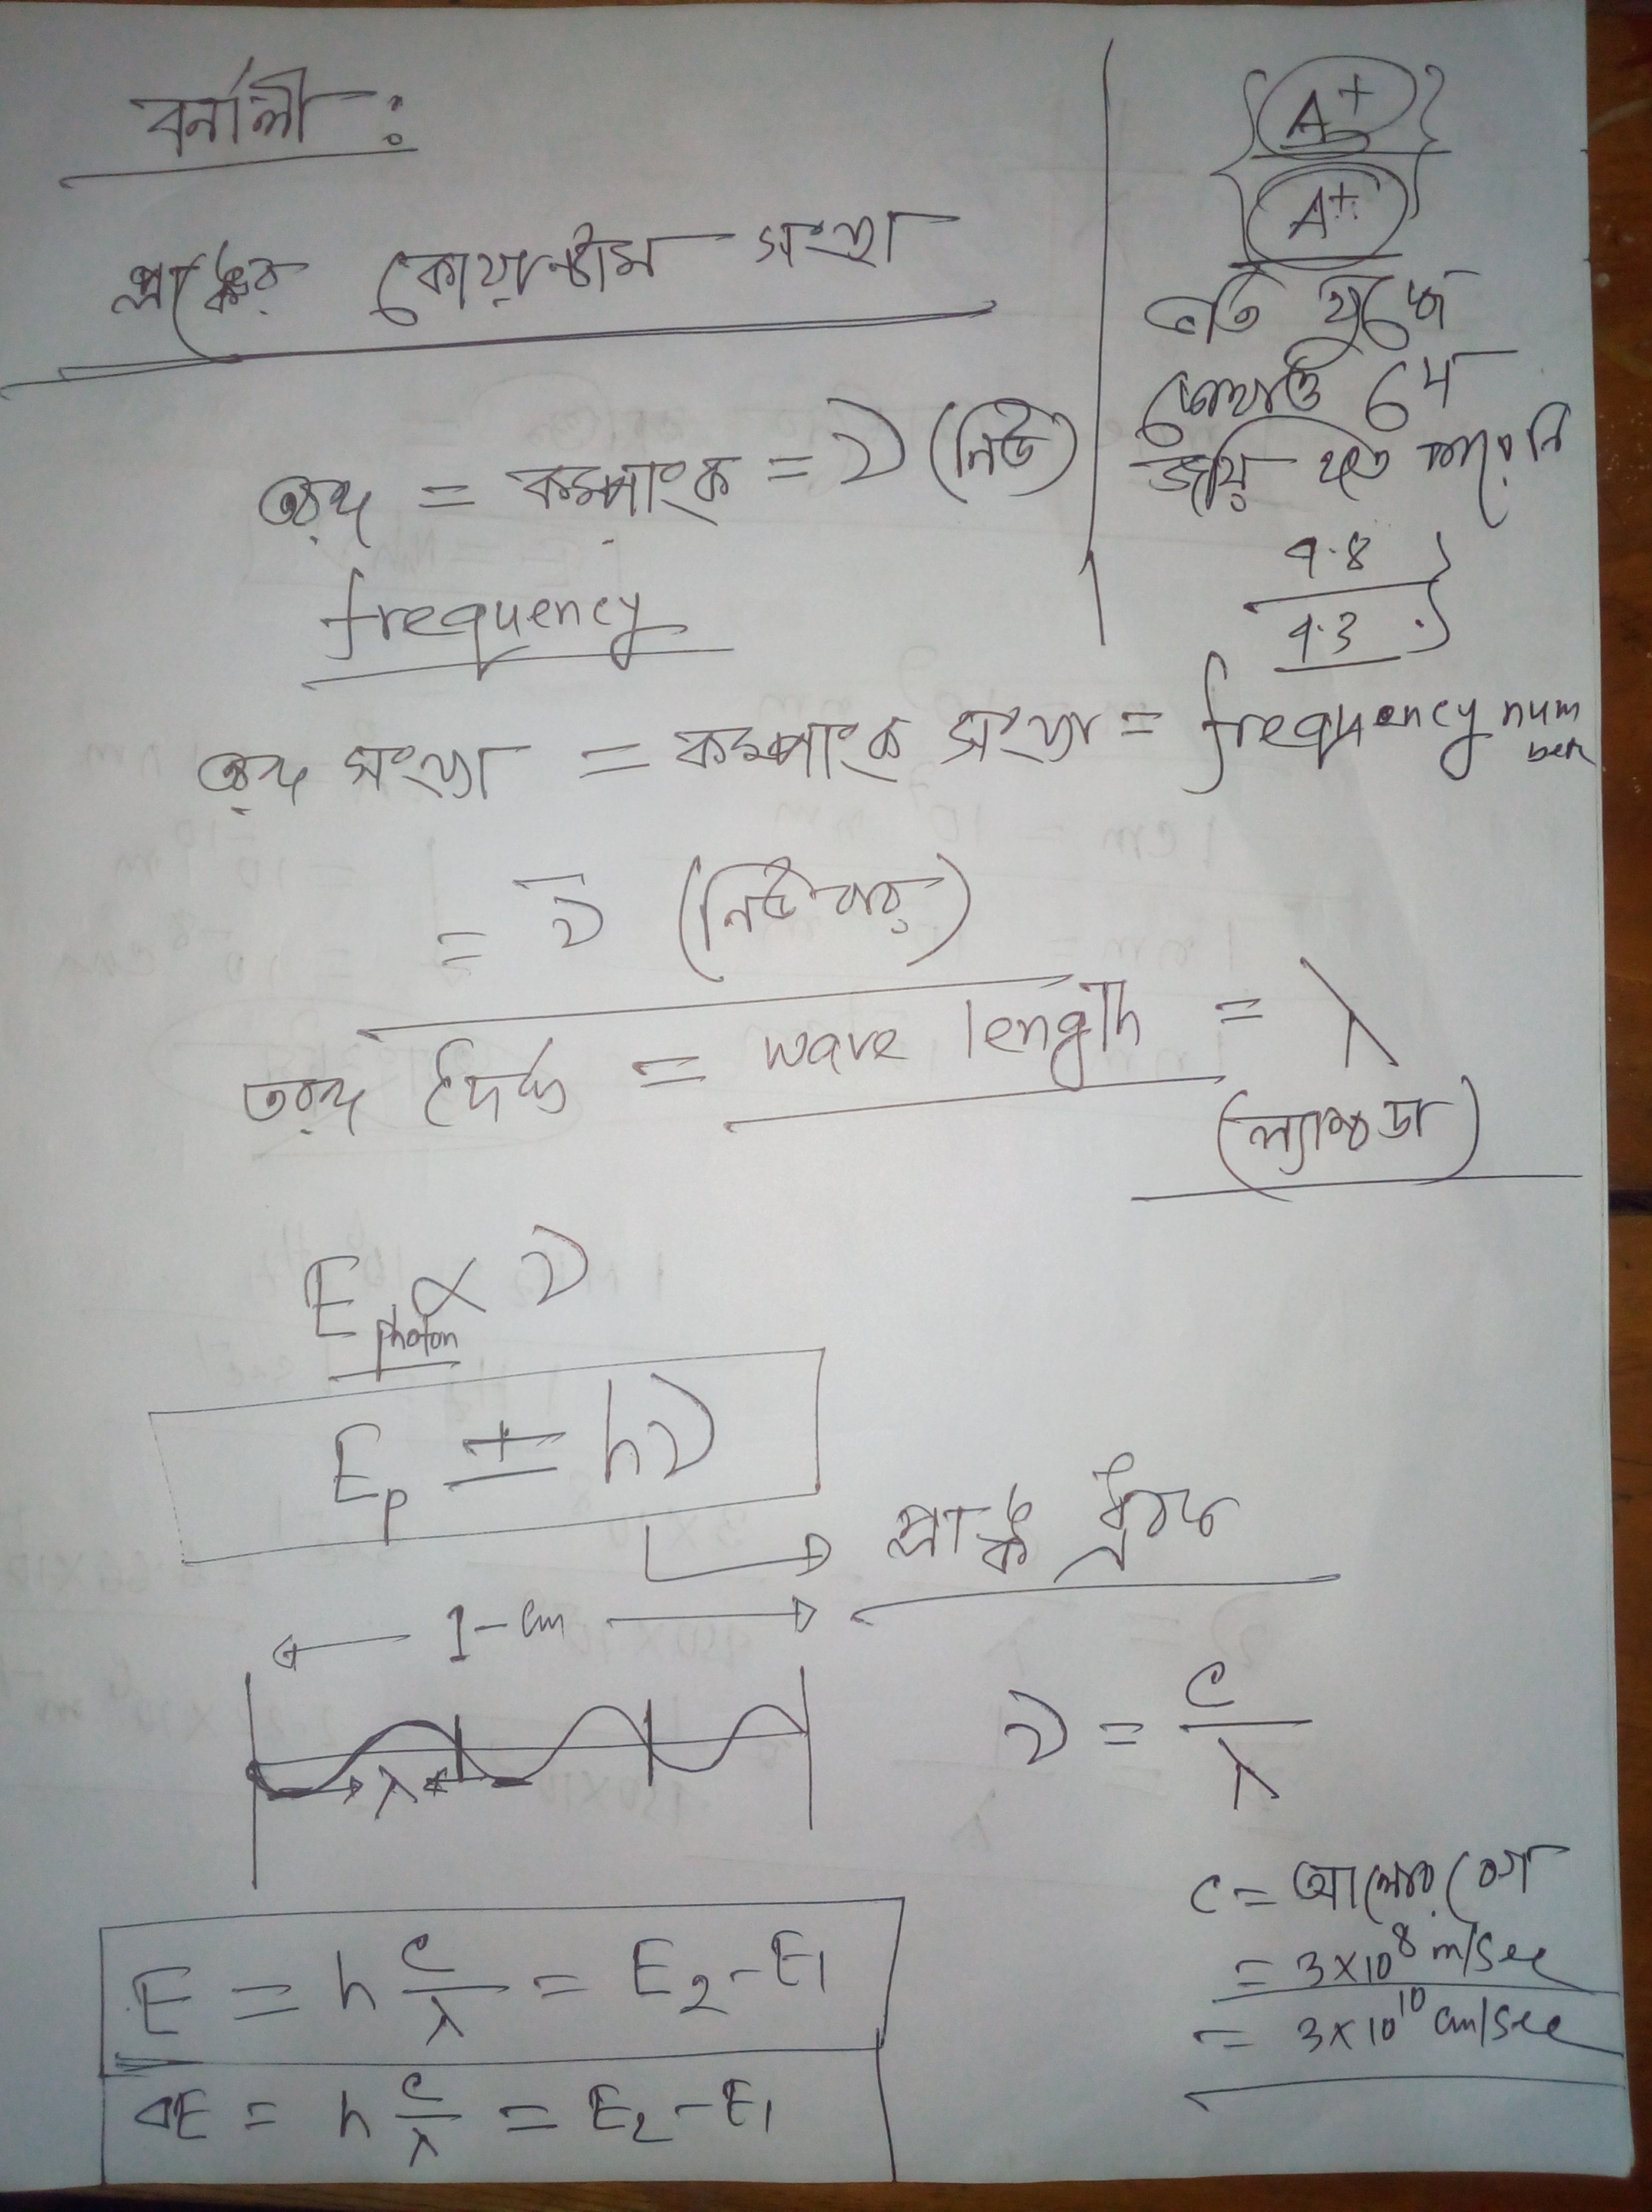 বর্নালী :
প্লাঙ্কের কোয়ান্টাম সংখ্যা
তরঙ্গ = কম্পাংক = ν (নিউ)
frequency
তরঙ্গ সংখ্যা = কম্পাংক সংখ্যা = frequency number
= ν̅ (নিউবার)
তরঙ্গ দৈর্ঘ্য = wave length = λ
(ল্যামডা)
E photon ∝ ν
Ep = hν
প্লাঙ্ক ধ্রুবক
1-cm
λ
ν = c/λ
c = আলোর বেগ
= 3×10⁸ m/sec
= 3×10¹⁰ cm/sec
E = h c/λ = E₂-E₁
ΔE = h c/λ = E₂-E₁
A+
A+
যুদ্ধে
৭.৪
৭.3